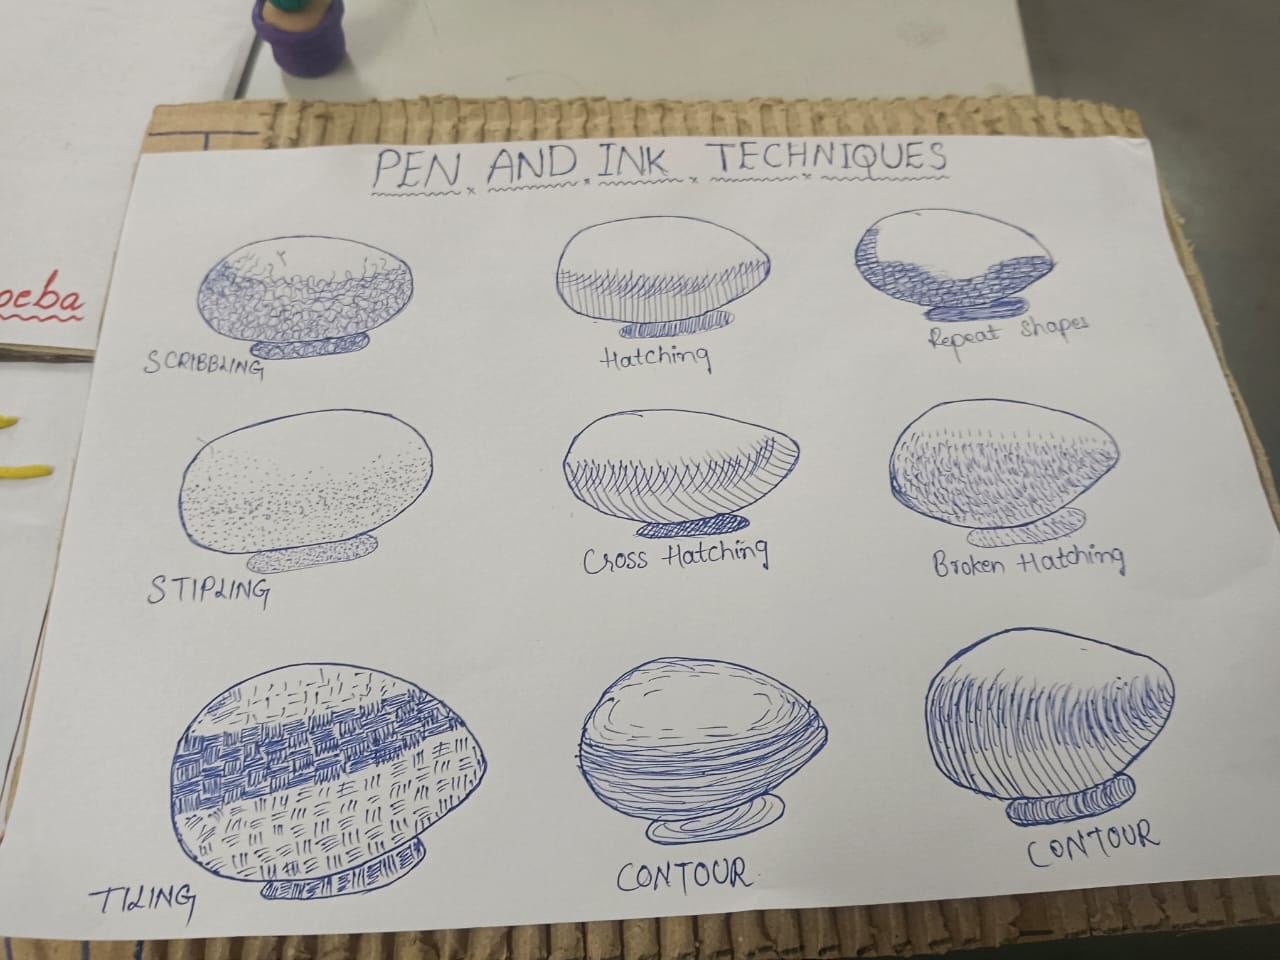 PEN AND INK TECHNIQUES
oeba
SCRIBBLING
Hatching
Repeat shapes
STIPLING
Cross Hatching
Broken Hatching
TILING
CONTOUR
CONTOUR